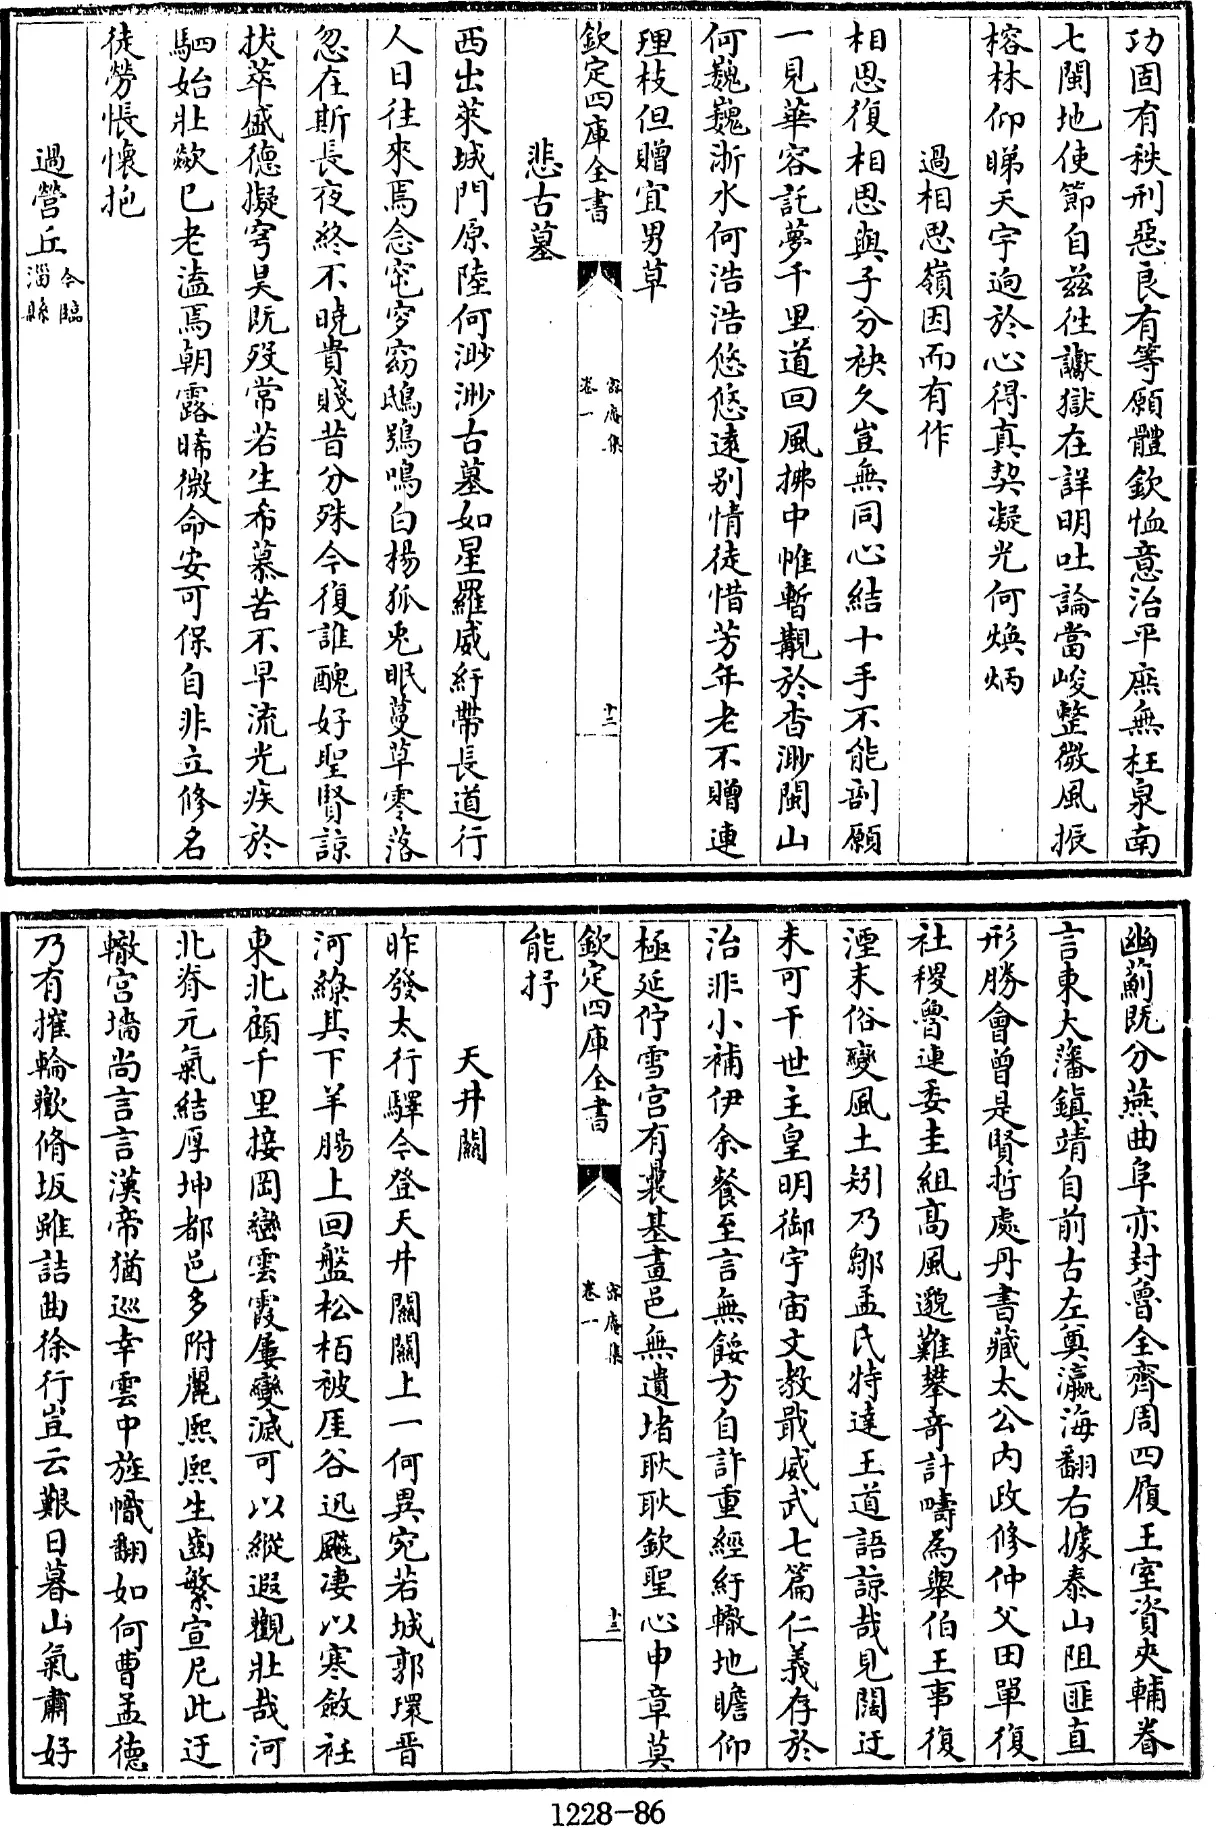 功固有秩刑惡良有等願體欽恤意治平庶無枉泉南
七閩地使節自兹徃讞獄在詳明吐論當峻整微風振
榕林仰睇天宇逈於心得真契凝光何煥炳
過相思嶺因而有作
相思復相思與子分袂久豈無同心結十手不能剖願
一見華容託夢千里道回風拂中帷暫覯於杳渺閩山
何巍巍浙水何浩浩悠悠遠别情徒惜芳年老不贈連
理枝但贈宜男草
欽定四庫全書
容庵集
卷一
十二
悲古墓
西出萊城門原陸何渺渺古墓如星羅威紆帶長道行
人日往來焉念窀穸窈鴟鴞鳴白楊狐兎眠蔓草零落
忽在斯長夜終不曉貴賤昔分殊今復誰醜好聖賢諒
拔萃盛德擬穹昊旣殁常若生希慕苦不早流光疾於
駟始壯歘已老溘焉朝露晞微命安可保自非立修名
徒勞悵懷抱
過營丘今臨淄縣
幽薊旣分燕曲阜亦封魯全齊周四履王室資夾輔眷
言東大藩鎮靖自前古左奠瀛海翻右據泰山阻匪直
形勝會曾是賢哲處丹書藏太公内政修仲父田單復
社稷魯連委圭組高風邈難攀奇計疇為舉伯王事復
湮末俗變風土矧乃鄒孟氏特達王道語諒哉見闊迂
未可干世主皇明御宇宙文教戢威武七篇仁義存於
治非小補伊余餐至言無餒方自許重經紆轍地瞻仰
極延佇雪宮有曩基畫邑無遺堵耿耿欽聖心申章莫
欽定四庫全書
容庵集
卷一
十三
能抒
天井關
昨發太行驛今登天井關關上一何異宛若城郭環晋
河繚其下羊腸上回盤松栢被厓谷迅飇凄以寒斂衽
東北顧千里接岡巒雲霞屢變滅可以縱遐觀壯哉河
北脊元氣結厚坤都邑多附麗熙熙生齒繁宣尼此迂
轍宮墻尚言言漢帝猶巡幸雲中旌幟翻如何曹孟德
乃有摧輪歎脩坂雖詰曲徐行豈云艱日暮山氣肅好
1228-86